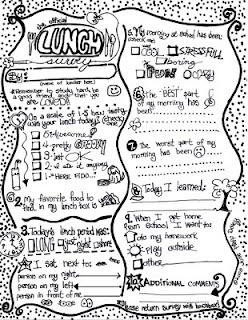 the official
LUNCH
survey
(name of luncher here)
Remember to study hard, be
a good friend, and that you
are LOVED!
1. On a scale of 1-5 how tasty
was your lunch today? (check
one)
5-Awesome
4-pretty GOOD
3-
2-ate it anyway
1-HERE FIDO...
2. My favorite food to
find in my lunch box is
3. Today's lunch period was:
LONG
right
4. I sat next to
person on my right
person on my left
person in front of me
5. My morning at school has been
(check one)
COOL
STRESSFULL
boring
FUNNY
CRAZY
6. The BEST part
of my morning has
been
7. The worst part of my
morning has been
8. Today I learned:
9. When I get home
from school I want to
do my homework
play outside
other
10. ADDITIONAL COMMENTS
please return survey with lunchbox!